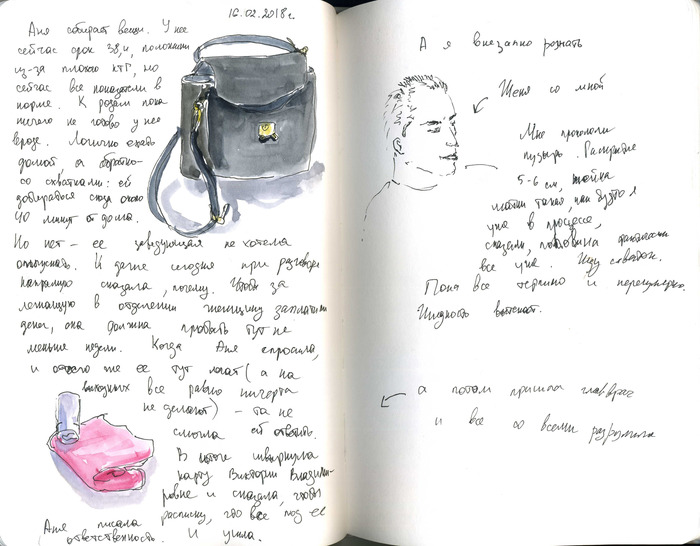 16.02.2018г.
Аня собирает вещи. У нее
сейчас срок 38,4, положили
из-за плохого КТГ, но
сейчас все показатели в
норме. К родам пока
ничего не готово у нее
вроде. Логично ехать
домой а обратно-
со схватками: ей
добираться сюда около
40 минут от дома.
Но нет – ее заведующая не хотела
отпускать. И даже сегодня при разговоре
напрямую сказала, почему. Чтобы за
лежащую в отделении женщину заплатили
денег, она должна пробыть тут не
меньше недели. Когда Аня спросила,
и отчего же ее тут лечат (а на
выходных все равно ничерта
не делают) – та не
смогла ей ответить.
В итоге швырнула
карту Виктории Владими-
ровне и сказала, чтобы
Аня писала расписку, что все под ее
ответственность. И ушла.
А я внезапно рожать
Женя со мной
Мне прокололи
пузырь. Раскрытие
5-6 см, шейка
мягкая такая, как будто я
уже в процессе,
сказали, половина
все уже. Жду схваток.
Пока все терпимо и
Жидкость вытекает.
а потом пришла главврач
и все со всеми разрулила